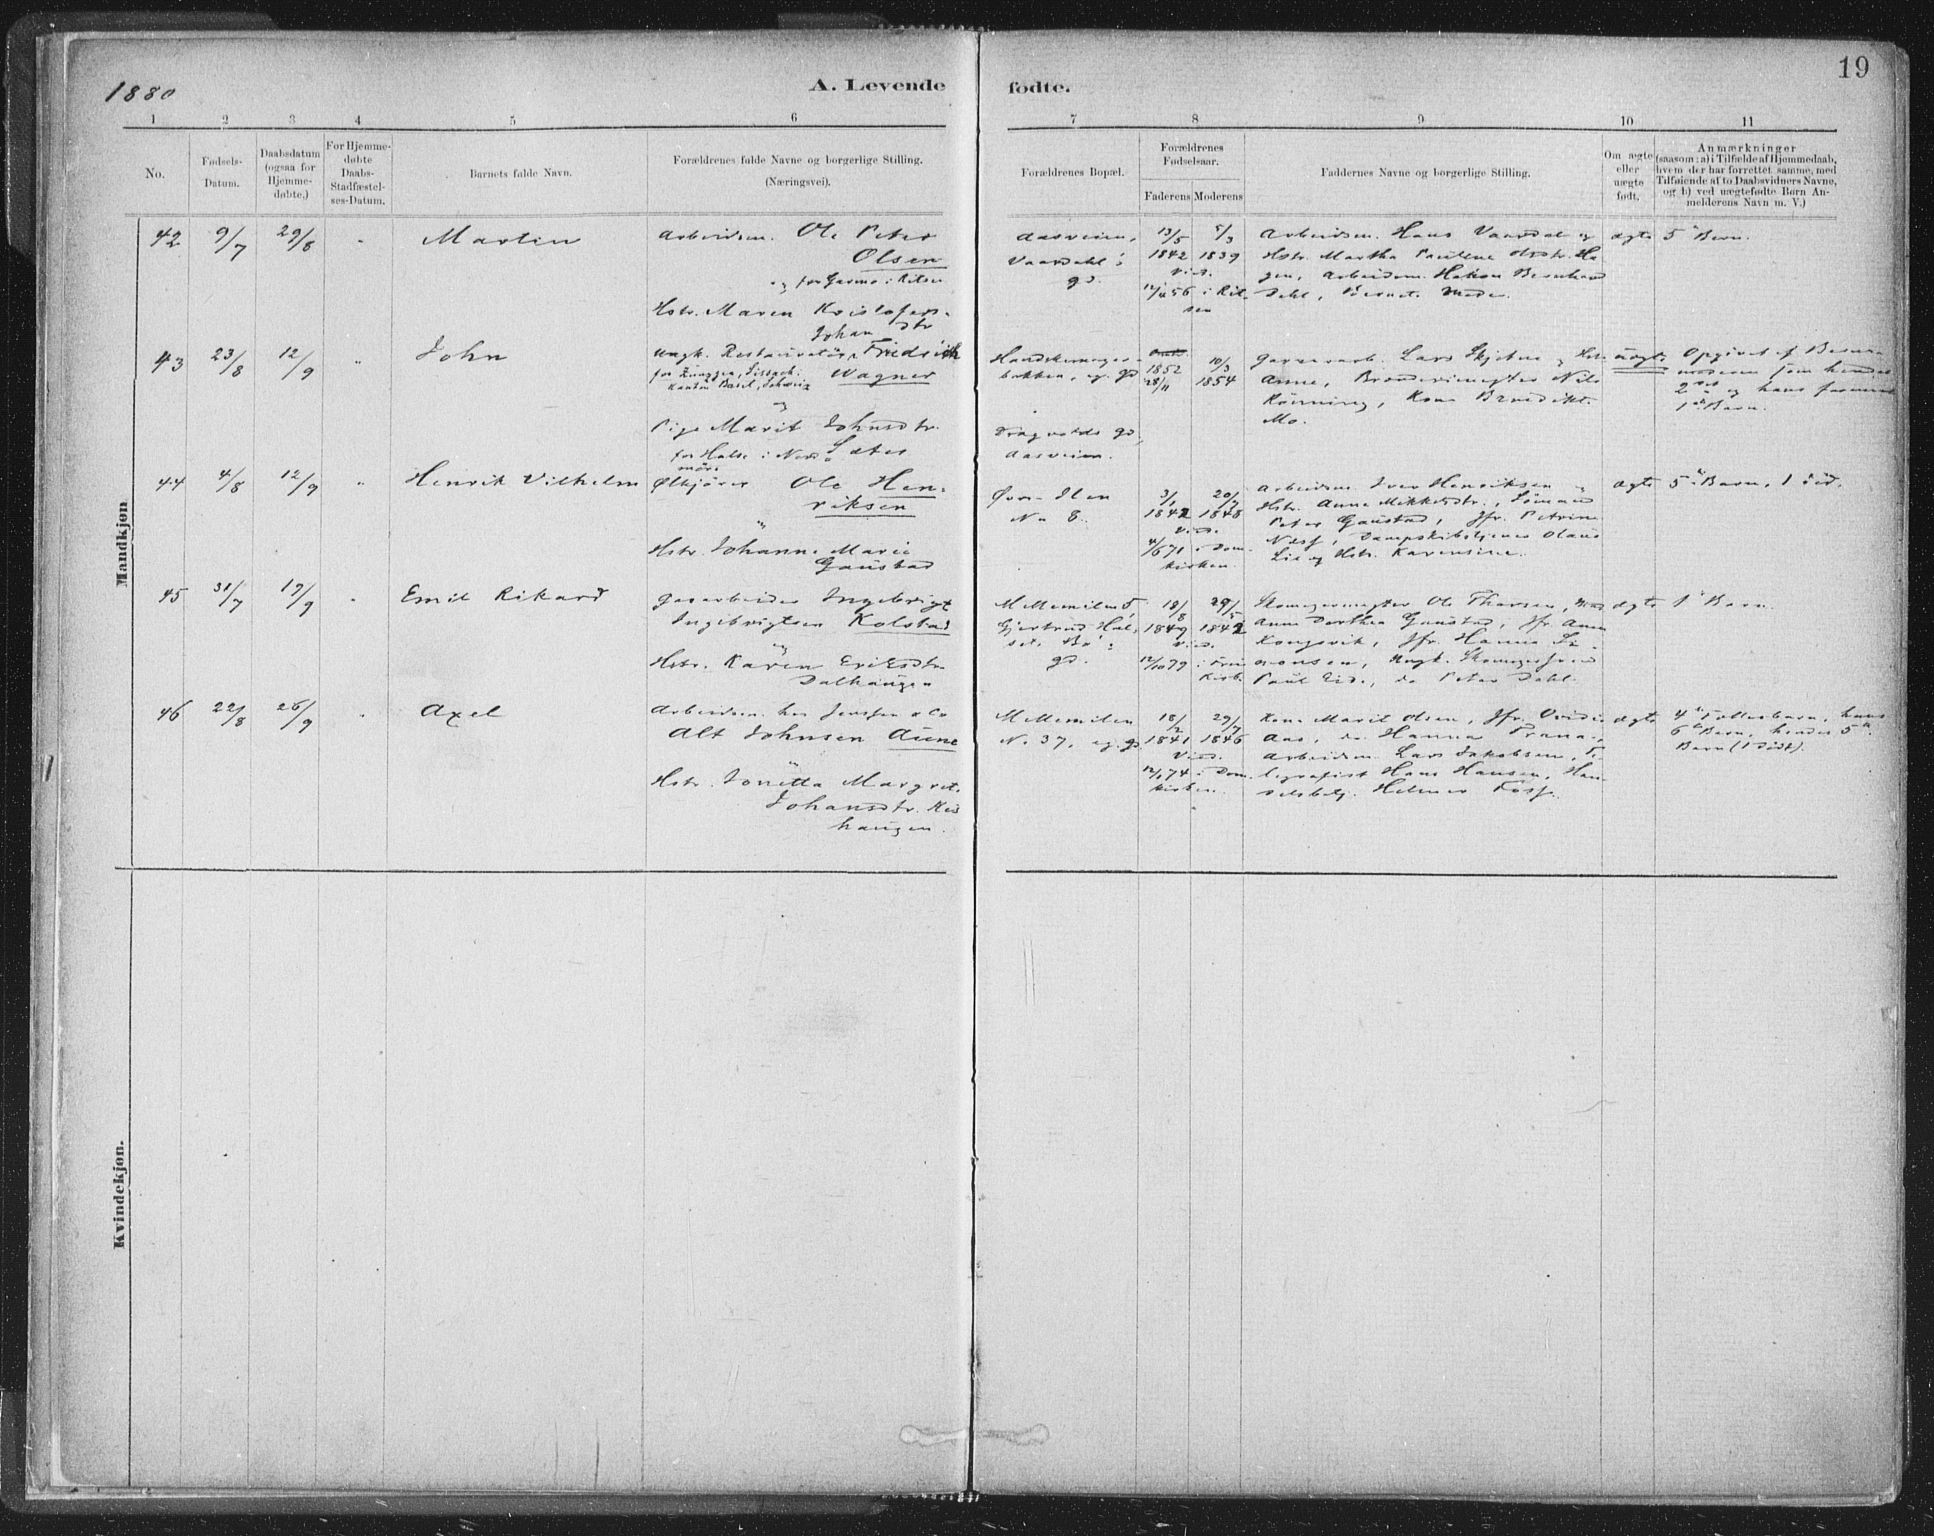 1880
A. Levende fødte.
19
1 2 3 4 5 6 7 8 9 10 11
No.
Fødsels-
Datum.
Daabsdatum
(ogsaa for
Hjemme-
døbte.)
For Hjemme-
døbte
Daabs-
Stadfæstel-
ses-Datum.
Barnets fulde Navn.
Forældrenes fulde Navne og borgerlige Stilling.
(Næringsvei).
Forældrenes Bopæl.
Forældrenes
Fødselsaar.
Faderens Moderens
Faddernes Navne og borgerlige Stilling.
Om ægte
eller
uægte
født.
Anmærkninger
(saasom: a) i Tilfælde af Hjemmedaab,
hvem der har forrettet samme, med
Tilføiende af to Daabsvidners Navne,
og b) ved uægtefødte Børn An-
melderens Navn m. V.)
Mandkjøn
42 9/7 29/8 " Martin
Arbeidsm. Ole Peter
Olsen
og
Hstr. Maren Kristofers-
dtr
Aasveien,
Vaardahls
gd.
13/5 5/3
1842 1839
Vied.
Arbeidsm. Hans Vaardal og
Hstr. Martha
Arbeidsm. Hakon Bernhard
Dahl, Barnets Moder.
ægte 5te Barn.
43 23/8 12/9 " John
Ungk. Restauratør Johan Friedrich
Wagner
Kanton Basel, Schweiz
og
Pige Marit Johnsdtr.
Sæter
fra Halse i Nord-
møre
Handskemager-
bakken, eg. gd
Dragvolds gd,
Aasveien.
1852
28/11
10/3
1854
Garverarb. Lars Skjetne og Hstr.
Anne, Brænderimester Nils
Rönning, Kone Benedikte
Mo.
uægte
Opgivet af Barne-
moderen som hendes
2det og hans
1ste Barn.
44 4/8 12/9 " Henrik Vilhelm
Ølkjører Ole Hen-
riksen
og
Hstr. Johanne Marie
Gaustad
Øvre Ilen
No 8.
3/1 20/7
1842 1848
Vied.
4/6 71 i Dom-
kirken.
Arbeidsm. Iver Henriksen og
Hstr. Anne Mikkelsdtr., Sömand
Peter Gaustad, Jfr. Petrine
Næss, Dampskibstjener Olaus
Lie og Hstr. Karensine.
ægte 5te Barn, 1 död.
45 31/7 19/9 " Emil Rikard
Gasarbeider Ingebrigt
Ingebrigtsen Kolstad
og
Hstr. Karen Eriksdtr.
Dalhaugen
Mellemilens
Gjertrud Hal-
set,
gd.
18/8 29/5
1849 1842
Vied.
12/10 79 i Frue
Kirke.
Skomagermester Ole Thorsen,
Anne Dorthea Gaustad, Jfr. Anna
Kongsvik, Jfr. Hanna Si-
monsen, Ungk. Skomagersvend
Paul Eide, do Peter Dahl.
ægte 1ste Barn.
46 22/8 26/9 " Axel
Arbeidsm. hos Jenssen & Co
Alt Johnsen Aune
og
Hstr. Jonetta Margret.
Johansdtr.
haugen.
Mellemilen
No. 37, eg. gd
18/2 29/7
1841 1846
Vied.
12/1 74 i Dom-
kirken.
Kone Marit Olsen, Jfr.
Aas, do Hanna Trana,
Arbeidsm. Lars Jakobsen, Te-
legrafist Hans Hansen, Han-
delsbetj. Helmer Foss.
ægte
4de Fællesbarn, hans
6te Barn, hendes 5te
Barn (1 dödt).
Kvindekjøn.